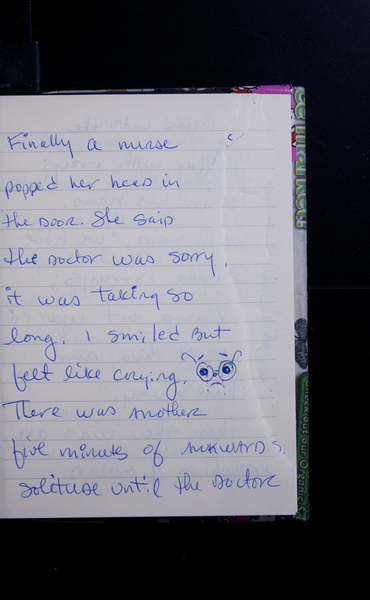 Finally a nurse
popped her head in
the door. She said
the doctor was sorry,
it was taking so
long. I smiled but
felt like crying.
There was another
five minutes of awkward
solitude until the doctor
Check out our Organics